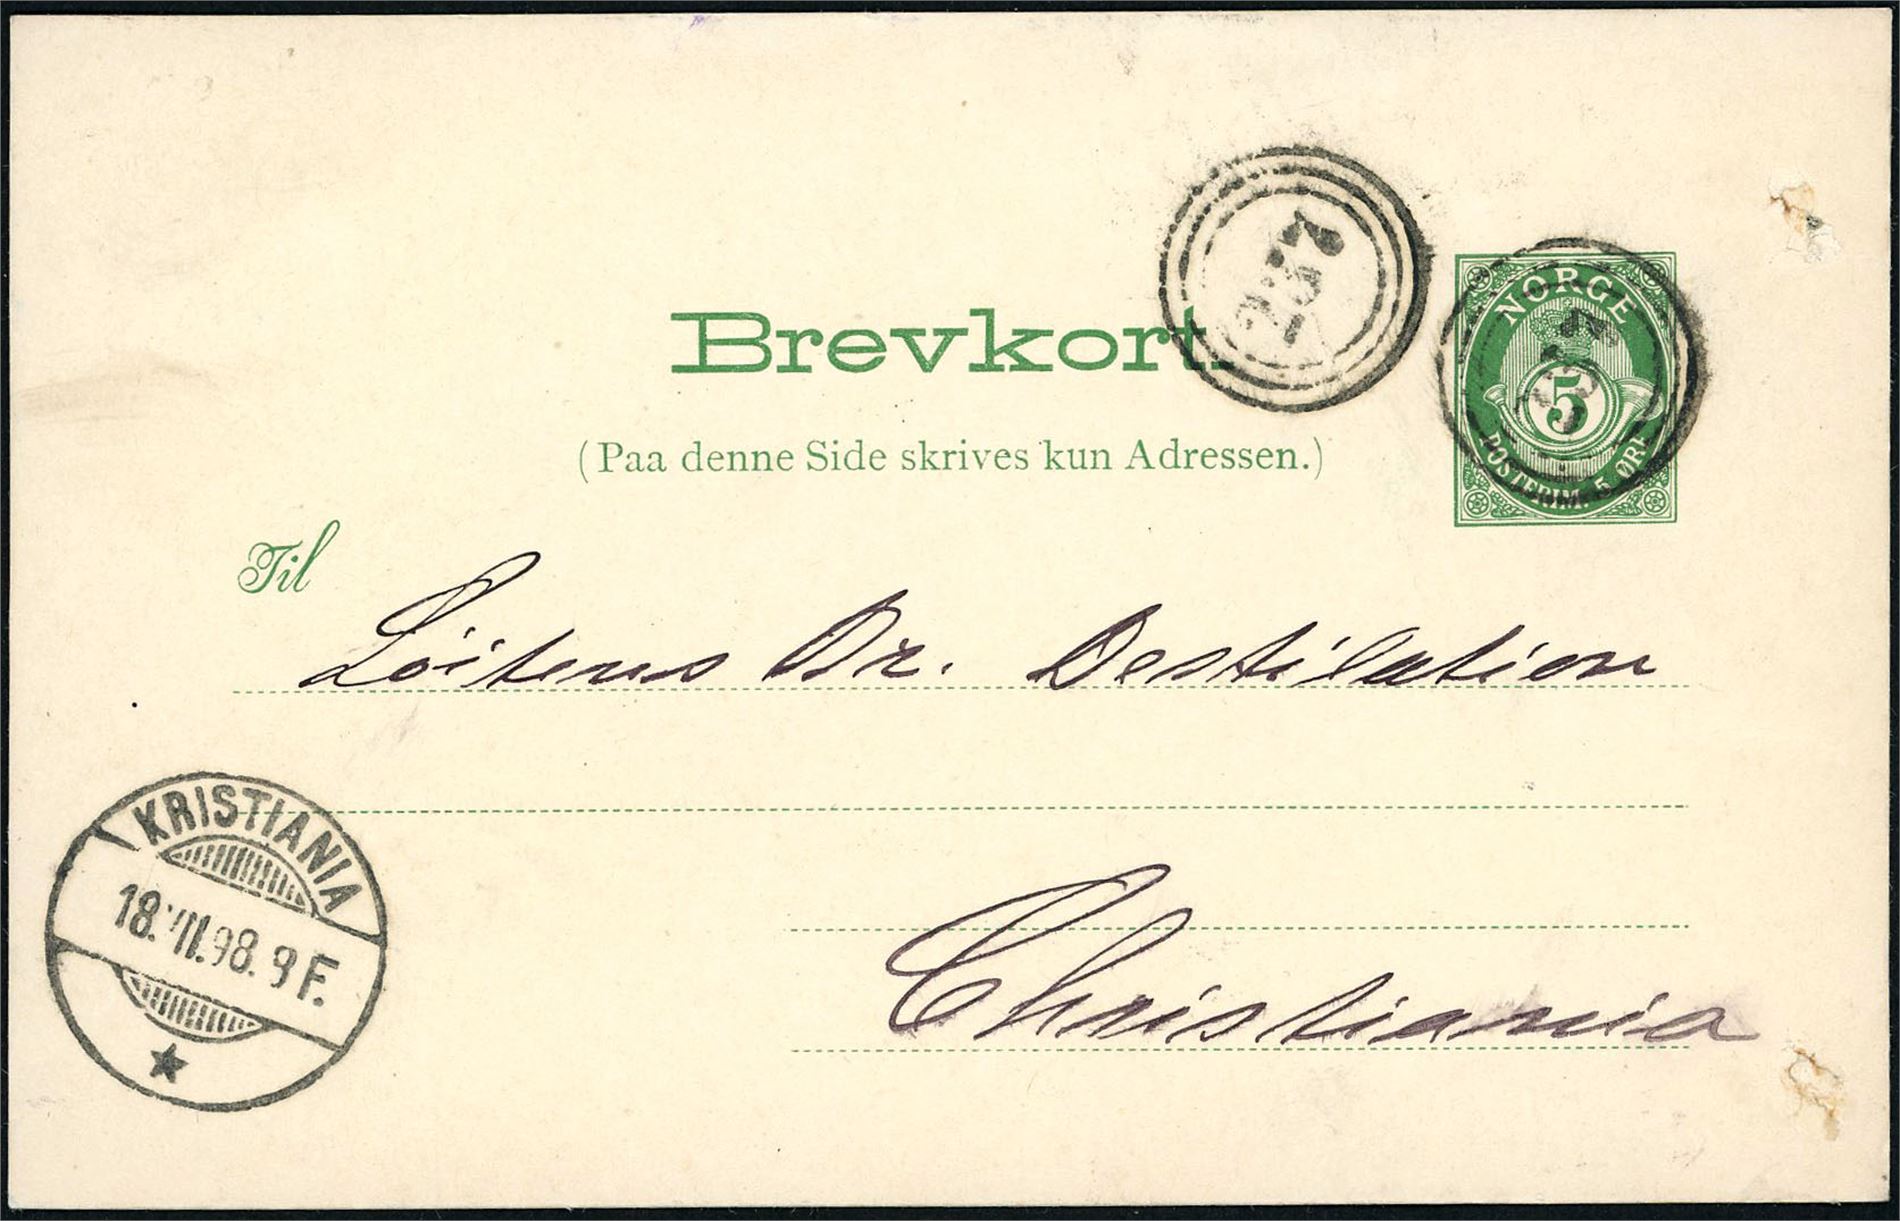 Brevkort.
237
NORGE
5
POSTFRIM. 5 ØRE
(Paa denne Side skrives kun Adressen.)
Til
Löitens Br. Destilation
KRISTIANIA
18.VII.98. 9 F.
Christiania